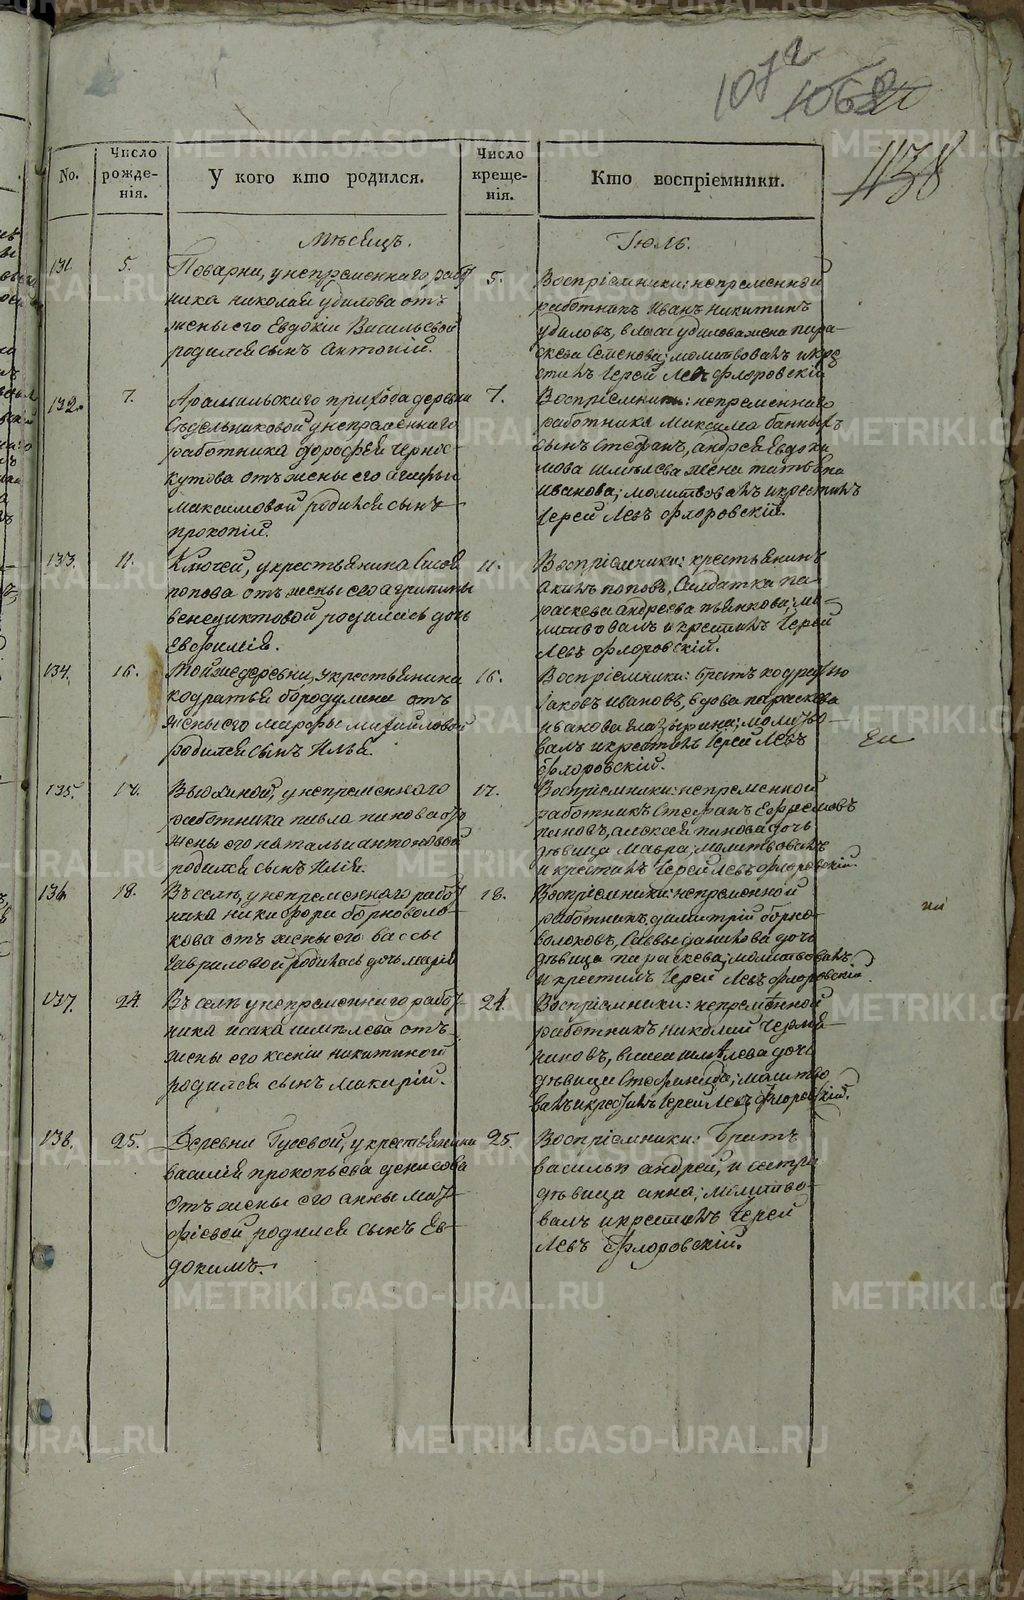 107
1138
No.
Число рожде-нія.
У кого кто родился.
Число креще-нія.
Кто воспріемники.
Мѣсяцъ.
Іюль.
131.
5.
Поварни, у непременнаго работ
ника николая удилова отъ
жены его Евдокіи Васильевой
родился сынъ Антоній.
5.
Воспріемники: непременной
работникъ Иванъ никитинъ
удиловъ, власа удилова жена пара-
скева Семенова; молитвовалъ и кре
стилъ Іерей Левъ Флоровскій
132.
7.
Арамильскаго прихода деревни
Седельниковой у непременнаго
работника дорофея Чернос-
кутова отъ жены его
Максимовой родился сынъ
прокопій.
7.
Воспріемники: непременнаго
работника Максима
сынъ Стефанъ, андрея Евдоки
мова шмелева жена татьяна
иванова; молитвовалъ и крестилъ
Іерей Левъ Флоровскій.
133.
11.
Ключей, у крестьянина
попова отъ жены его агрипины
венедиктовой родилась дочь
Евфимія.
11.
Воспріемники: крестьянинъ
попова, Солдатка па-
раскева андреева пьянкова; мо-
литвовалъ и крестилъ Іерей
Левъ Флоровскій.
134.
16.
Той же деревни, у крестьянина
кодратья бородулина отъ
жены его марфы михайловой
родился сынъ Илья.
16.
Воспріемники: братъ
Іаковъ ивановъ, вдова параскева
иванова глазырина; молитво-
валъ и крестилъ Іерей Левъ
Флоровскій.
135.
17.
Вьюхиной, у непременнаго
работника павла панова отъ
жены его натальи антоновой
родился сынъ Илія.
17.
Воспріемники: непременной
работникъ Стефанъ Ефремовъ
пановъ, алексея панова дочь
дѣвица Мавра; молитвовалъ
и крестилъ Іерей Левъ Флоровскій.
136
18.
Въ селѣ, у непременнаго работ
ника никифора борноволо-
кова отъ жены его вассы
гавриловой родилась дочь марія
18.
Воспріемники: непременной
работникъ димитрій борно-
волоковъ, Саввы данилова дочь
дѣвица параскева; молитвовалъ
и крестилъ Іерей Левъ Флоровскій
137.
24
Въ селѣ у непременнаго работ
ника исака шмелева отъ
жены его ксеніи никитиной
родился сынъ макарій.
24.
Воспріемники: непременной
работникъ николай
шмелева дочь
дѣвица Стефанида; молитво
валъ и крестилъ Іерей Левъ Флоровскій.
138.
25.
Деревни Гусевой, у крестьянина
василія прокопьева денисова
отъ жены его анны мат-
фіевой родился сынъ Ев-
докимъ.
25.
Воспріемники: братъ
василья андрей, и сестра
дѣвица анна; молитво-
валъ и крестилъ Іерей
Левъ Флоровскій.
METRIKI.GASO-URAL.RU